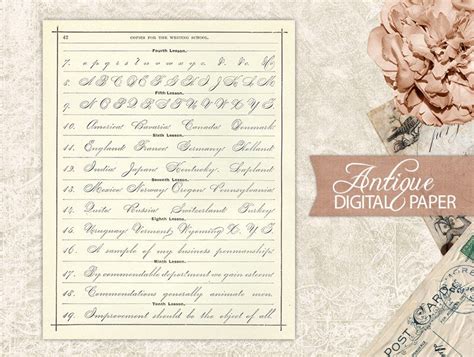 42
COPIES FOR THE WRITING SCHOOL.
Fourth Lesson.
7.
8. A B C D E F G H I J K L M
Fifth Lesson.
9. N O P Q R S T U V W X Y Z
10. America Bavaria Canada Denmark
Sixth Lesson.
11. England France Germany Holland
12. India Japan Kentucky Scotland
Seventh Lesson.
13. Mexico Norway Oregon Pennsylvania
14. Quito Russia Switzerland Turkey
Eighth Lesson.
15. Uruguay Vermont Wyoming
16. A sample of my business penmanship
Ninth Lesson.
17. By commendable deportment we gain esteem
18. Commendations generally animate men.
Tenth Lesson.
19. Improvement should be the object of all.
Antique
DIGITAL PAPER
POST CARD